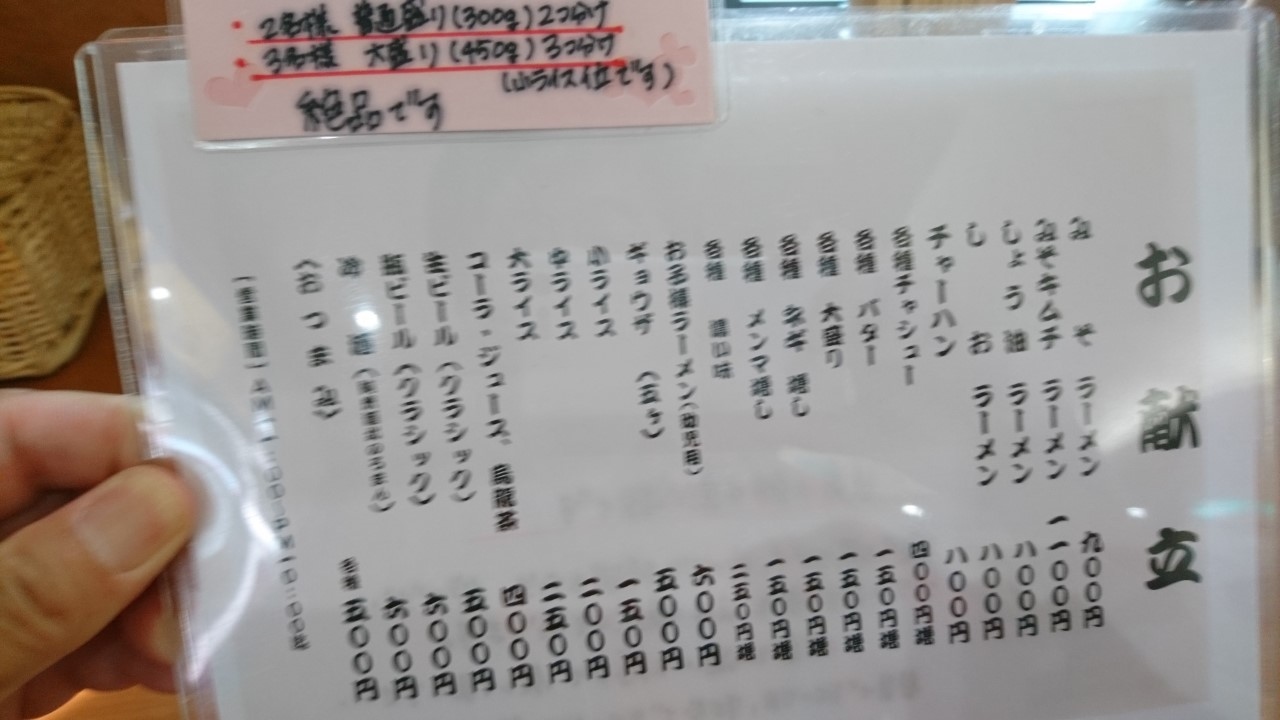 2名様 普通盛り(300g)2つ分け
3名様 大盛り(450g)3つ分け
(小ライス位です)
絶品です
お献立
みそ ラーメン 九〇〇円
みそキムチ ラーメン 一一〇〇円
しょう油 ラーメン 八〇〇円
しお ラーメン 八〇〇円
チャーハン 八〇〇円
各種チャシュー 四〇〇円増
各種 バター 一五〇円増
各種 大盛り 一五〇円増
各種 ネギ 増し 一五〇円増
各種 メンマ増し 一五〇円増
各種 濃い味 二五〇円増
お子様ラーメン(幼児用) 六〇〇円
ギョウザ (五ケ) 五〇〇円
小ライス 一五〇円
中ライス 二〇〇円
大ライス 二五〇円
コーラ・ジュース、烏龍茶 四〇〇円
生ビール (クラシック) 五〇〇円
瓶ビール (クラシック) 六〇〇円
冷 酒 六〇〇円
(おつまみ) 各種 五〇〇円